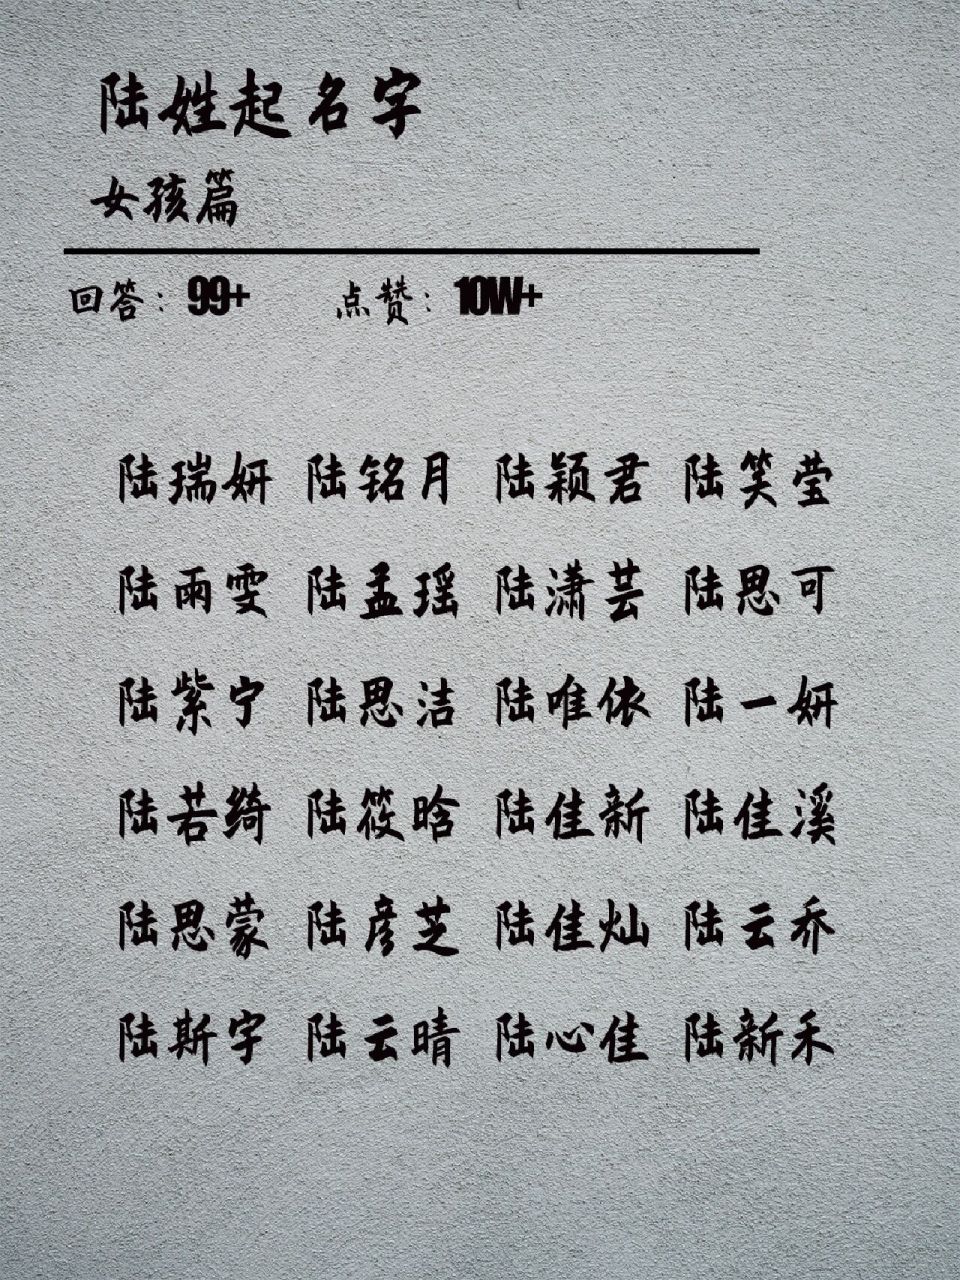 陆姓起名字
女孩篇
回答：99+ 点赞：10W+
陆瑞妍 陆铭月 陆颖君 陆笑莹
陆雨雯 陆孟瑶 陆潇芸 陆思可
陆紫宁 陆思洁 陆唯依 陆一妍
陆若绮 陆筱晗 陆佳新 陆佳溪
陆思蒙 陆彦芝 陆佳灿 陆云乔
陆斯宇 陆云晴 陆心佳 陆新禾